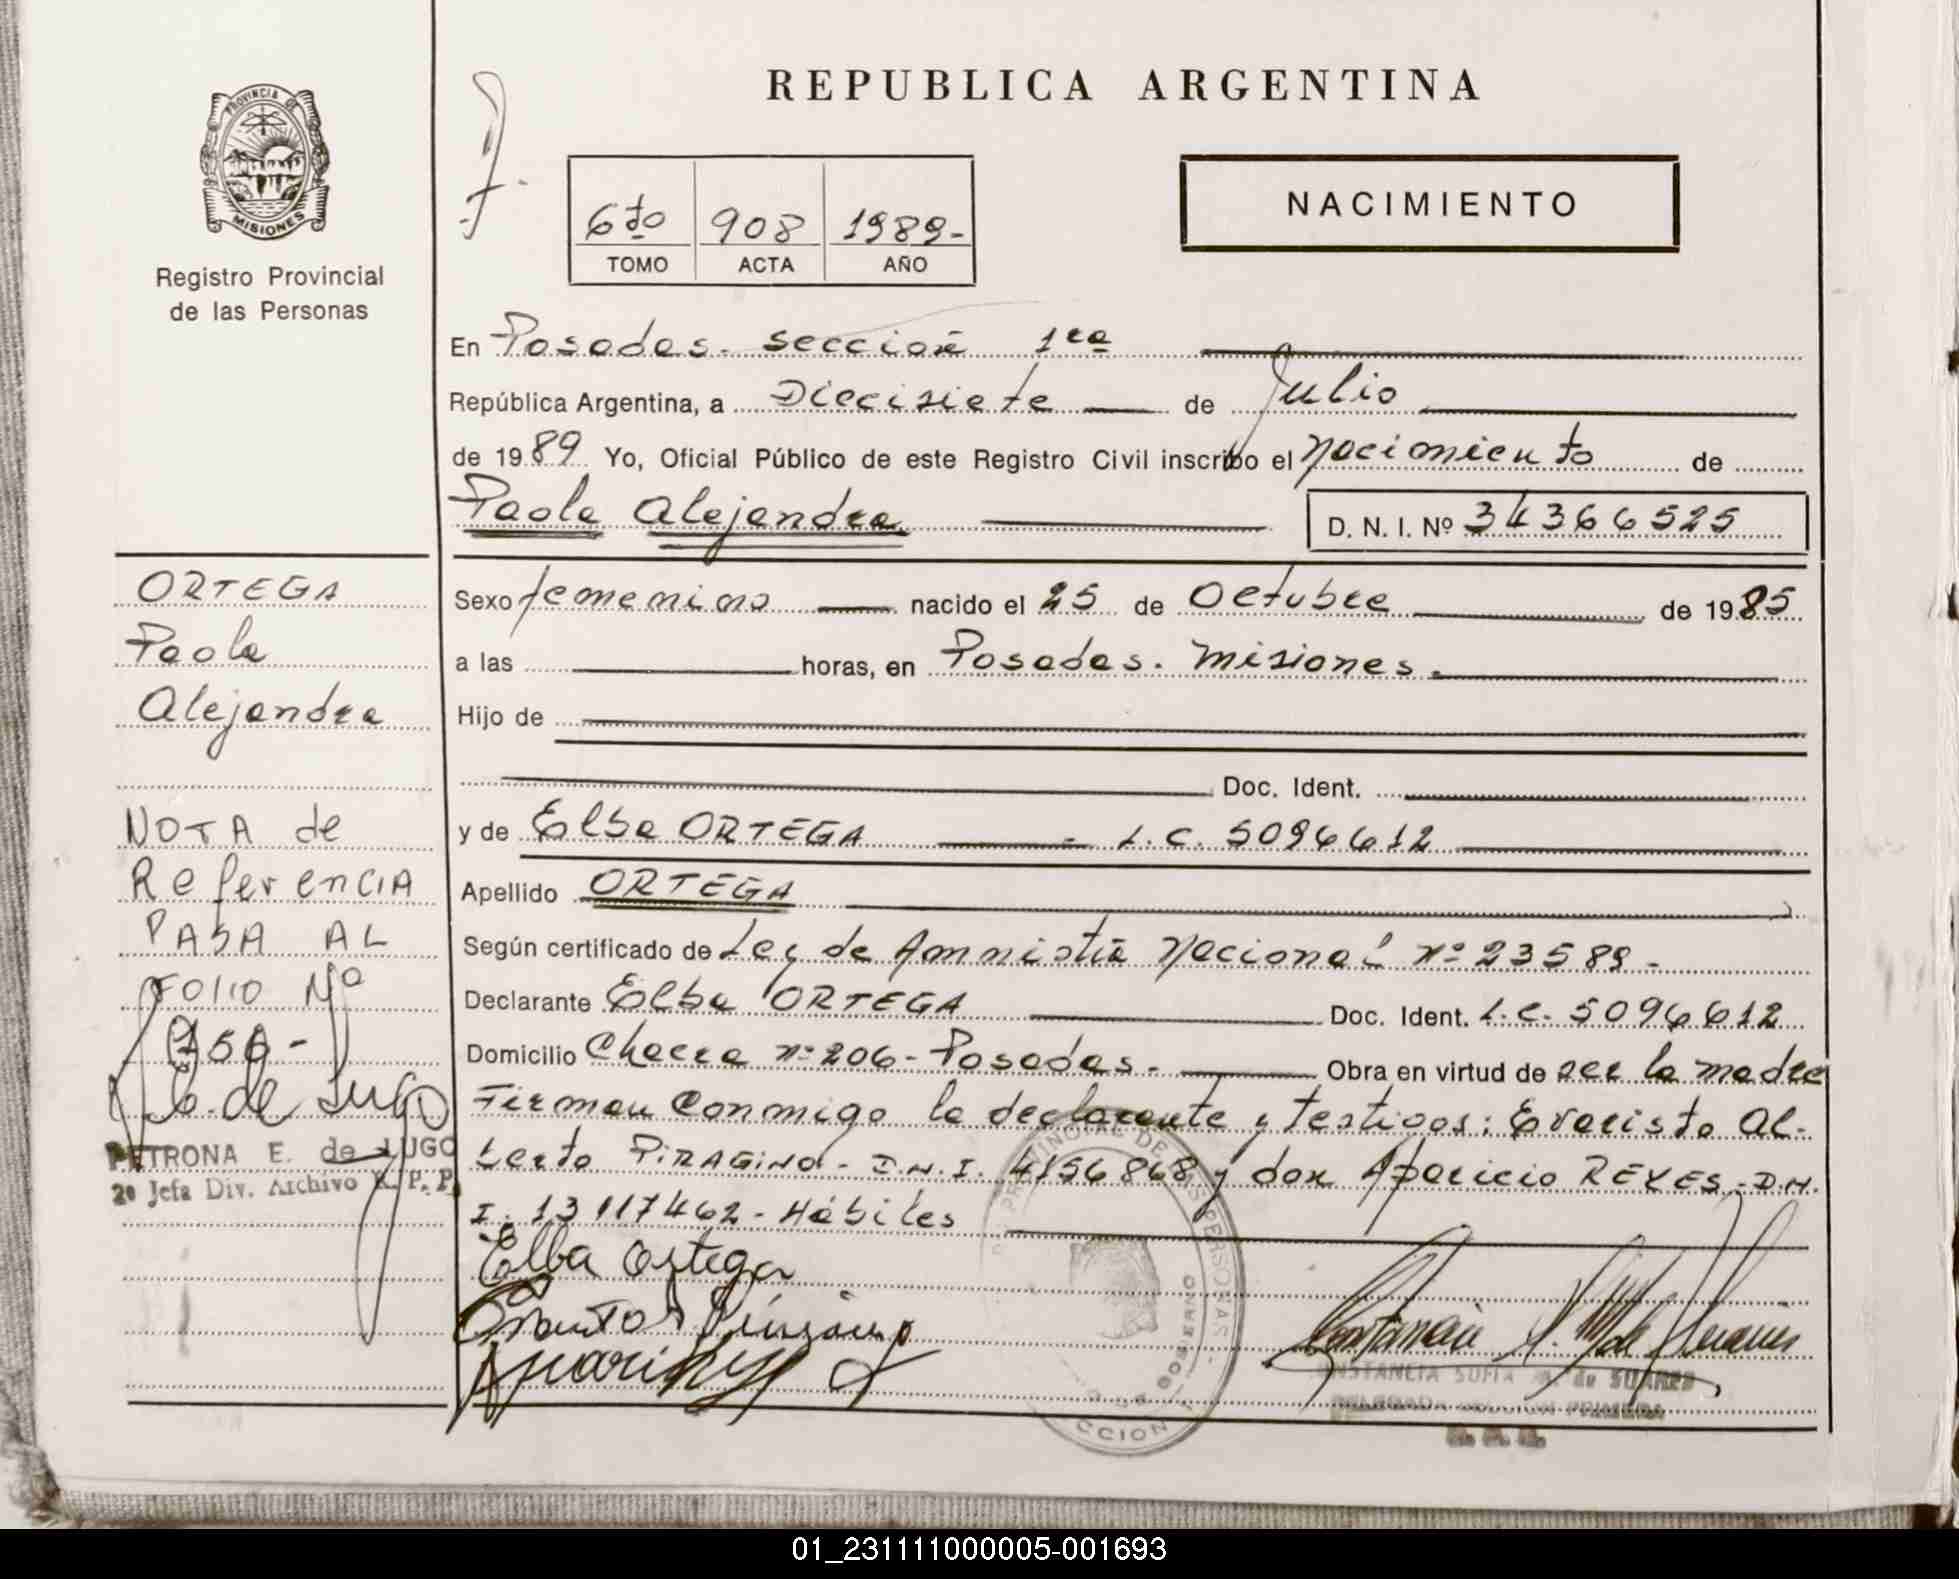 REPUBLICA ARGENTINA
PROVINCIA DE
MISIONES
Registro Provincial
de las Personas
6to 908 1989-
TOMO ACTA AÑO
NACIMIENTO
En Posadas. sección 1ra
República Argentina, a Diecisiete de Julio
de 1989 Yo, Oficial Público de este Registro Civil inscribo el Nacimiento de
Paola Alejandra D. N. I. Nº 34366525
Sexo femenino nacido el 25 de Octubre de 1985
a las horas, en Posadas. Misiones.
Hijo de
Doc. Ident.
y de Elba ORTEGA - L.C. 5096612
Apellido ORTEGA
Según certificado de Ley de Amnistía Nacional Nº 23589-
Declarante Elba ORTEGA Doc. Ident. L.C. 5096612
Domicilio Chacra nº 206 - Posadas. - Obra en virtud de ser la madre
Firman conmigo la declarante y testigos: Evaristo Al-
berto PIRAGINO - D.N.I. 4156868 y don Aparicio REYES - D.N.
I. 13117462 - Hábiles
Elba Ortega
ORTEGA
Paola
Alejandra
NOTA de
Referencia
PASA AL
FOLIO Nº
de Lugo
PETRONA E. de LUGO
2º Jefa Div. Archivo R. P. P.
CONSTANCIA SOFIA M. de SUAREZ
DELEGADA SECCION PRIMERA
01_231111000005-001693